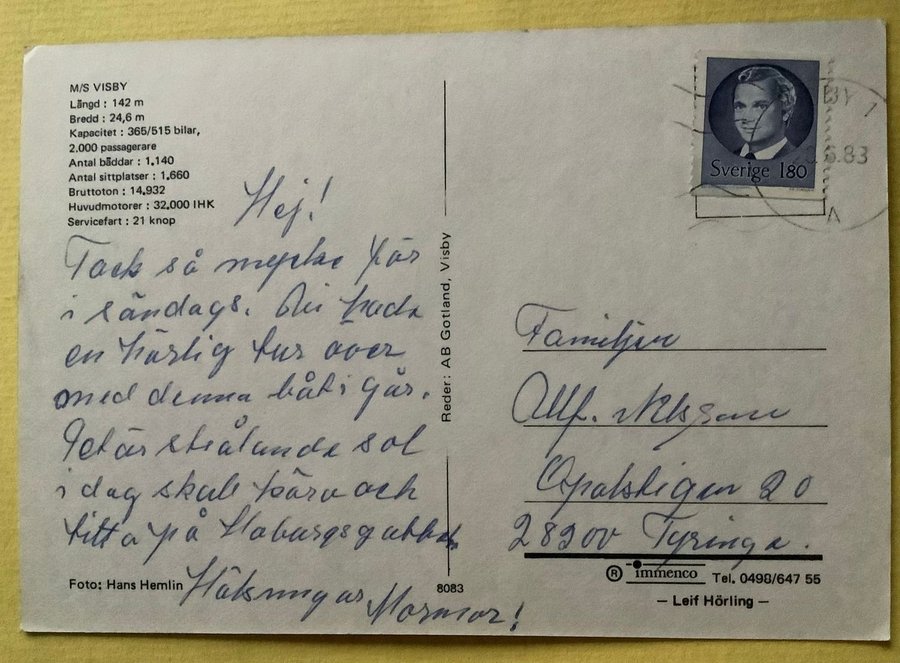 M/S VISBY
Längd : 142 m
Bredd : 24,6 m
Kapacitet : 365/515 bilar,
2.000 passagerare
Antal bäddar : 1.140
Antal sittplatser : 1.660
Bruttoton : 14.932
Huvudmotorer : 32.000 IHK
Servicefart : 21 knop
Hej!
Tack så mycke för
i söndags. Vi hade
en härlig tur över
med denna båt i går.
Det är strålande sol
i dag skall köra och
titta på Hoburgsgubben
Hälsningar
Mormor!
Foto: Hans Hemlin
8083
Reder: AB Gotland, Visby
Sverige 180
BY 1
.6.83
Familjen
Alf. Nilsson
Opalstigen 20
28200 Tyringe.
® immenco Tel. 0498/647 55
– Leif Hörling –